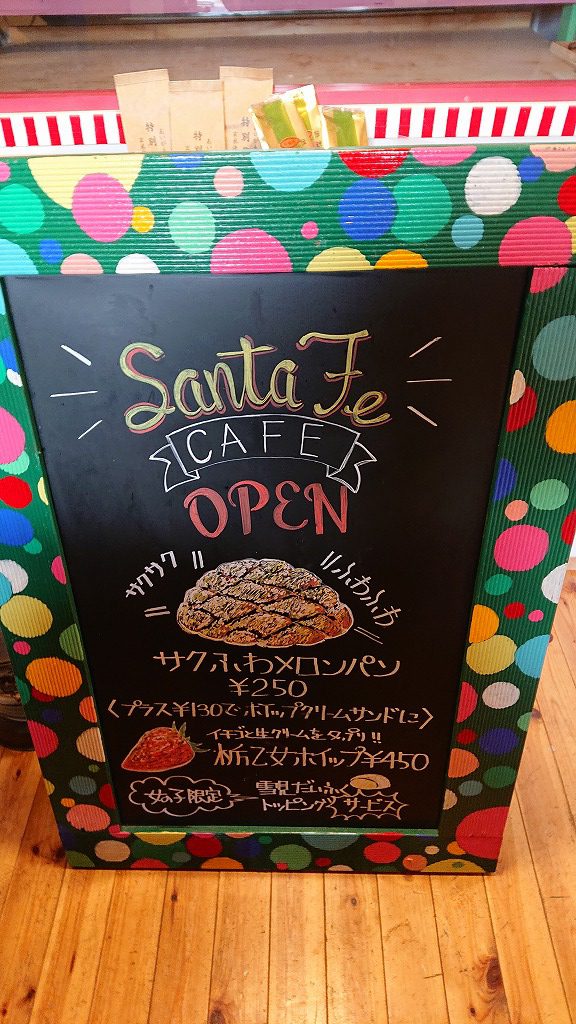 特別
特別
特別
Santa Fe
CAFE
OPEN
サクサク
ふわふわ
サクふわメロンパン
¥250
〈プラス¥130でホイップクリームサンドに〉
イチゴと生クリームをタップリ!!
栃乙女ホイップ¥450
女の子限定
雪見だいふく
トッピングサービス